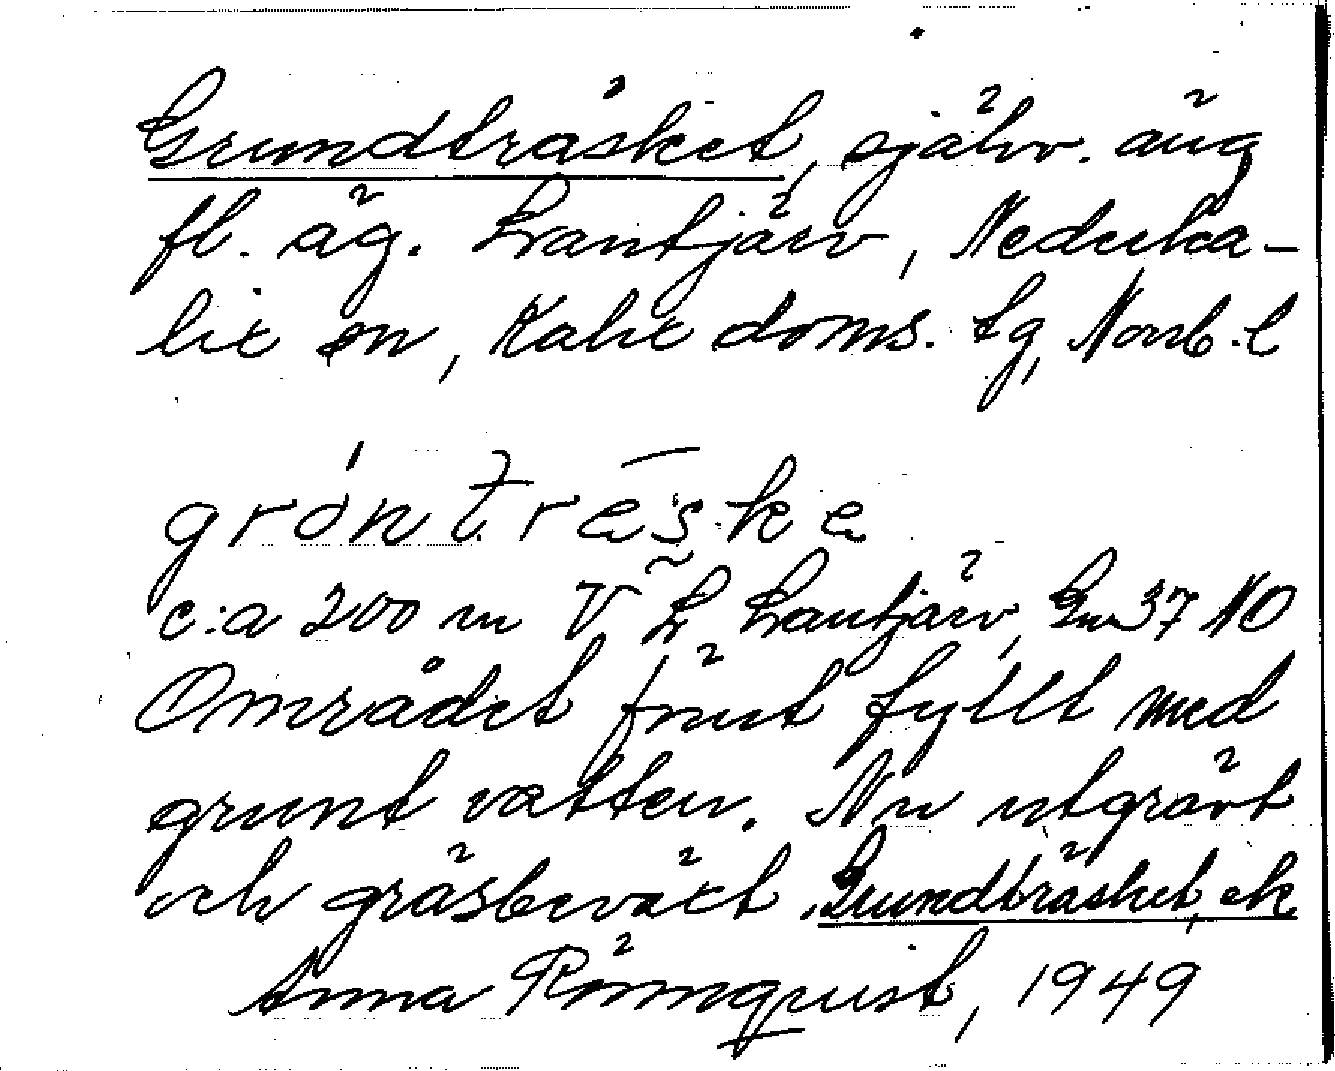 Grundträsket, självv. äng
fl. äg. Lantjärv, Nederka-
lix sn, Kalix doms. tg, Norrb. l
gróntrǟske
c:a 200 m V L Lantjärv, Gm 37 NO
Området förut fyllt med
grunt vatten. Nu utgrävt
och gräsbeväxt. Grundträsket, ek
Anna Rönnquist, 1949